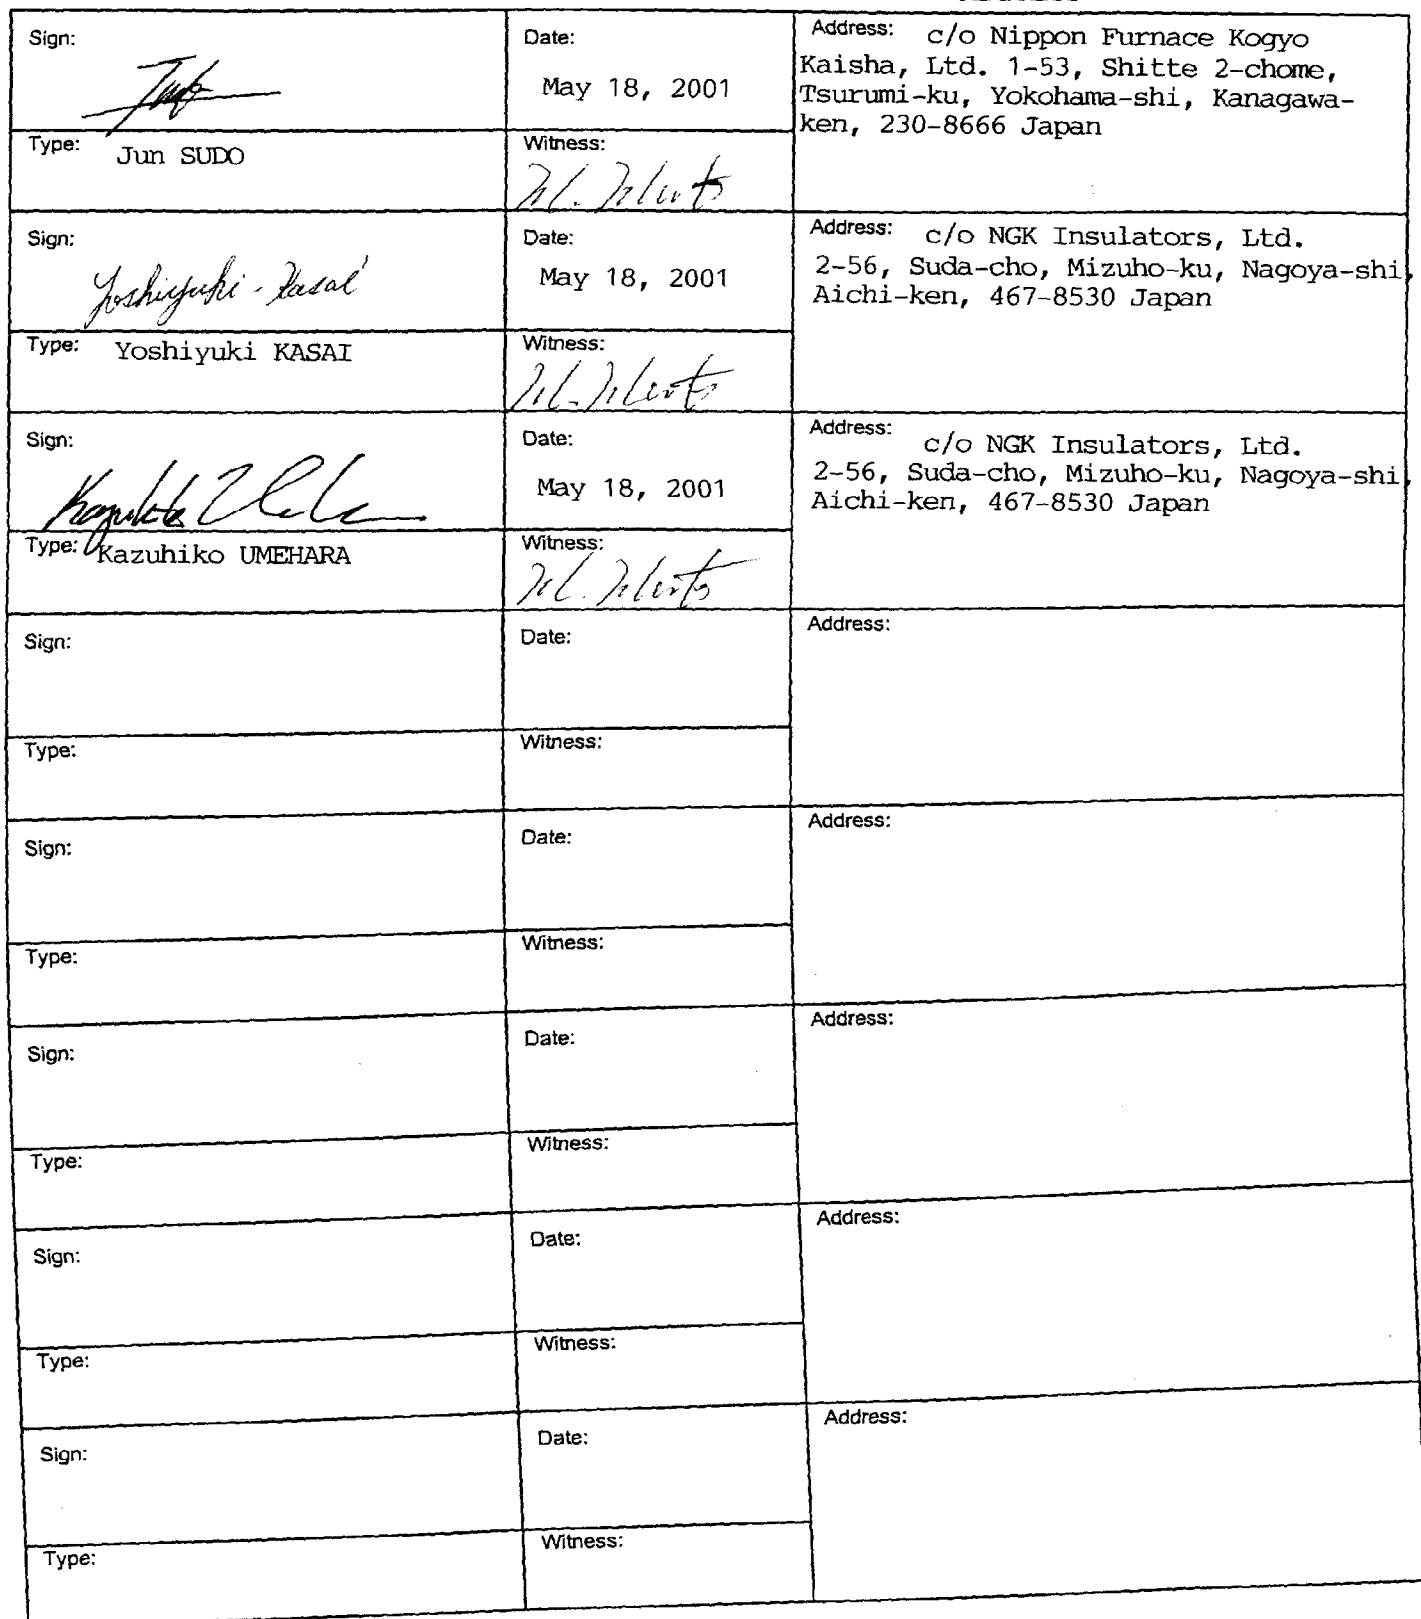 Sign:
Date:
Address: c/o Nippon Furnace Kogyo
Kaisha, Ltd. 1-53, Shitte 2-chome,
May 18, 2001
Tsurumi-ku, Yokohama-shi, Kanagawa-
ken, 230-8666 Japan
Type: Jun SUDO
Witness:
Sign:
Date:
Address: c/o NGK Insulators, Ltd.
Yoshiyuki-Kasai
May 18, 2001
2-56, Suda-cho, Mizuho-ku, Nagoya-shi,
Aichi-ken, 467-8530 Japan
Type: Yoshiyuki KASAI
Witness:
Sign:
Date:
Address: c/o NGK Insulators, Ltd.
May 18, 2001
2-56, Suda-cho, Mizuho-ku, Nagoya-shi,
Aichi-ken, 467-8530 Japan
Type: Kazuhiko UMEHARA
Witness:
Sign:
Date:
Address:
Type:
Witness:
Sign:
Date:
Address:
Type:
Witness:
Sign:
Date:
Address:
Type:
Witness:
Sign:
Date:
Address:
Type:
Witness:
Sign:
Date:
Address:
Type:
Witness: